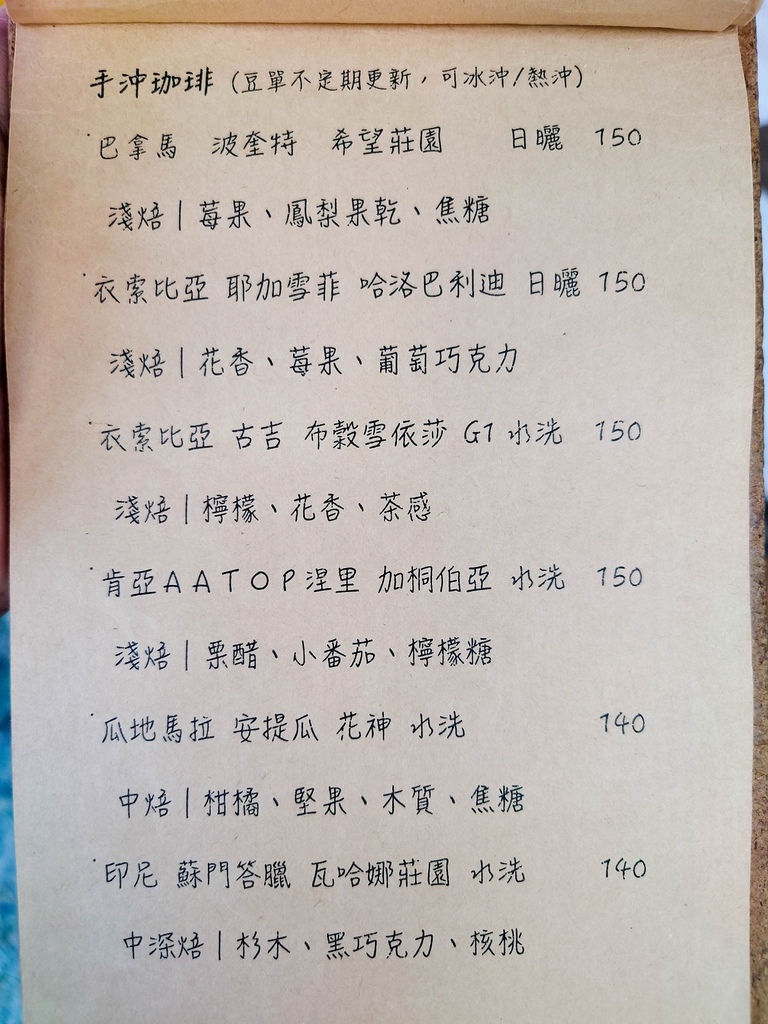 手沖珈琲（豆單不定期更新，可冰沖/熱沖）
巴拿馬 波奎特 希望莊園 日曬 150
淺焙｜莓果、鳳梨果乾、焦糖
衣索比亞 耶加雪菲 哈洛巴利迪 日曬 150
淺焙｜花香、莓果、葡萄巧克力
衣索比亞 古吉 布穀雪依莎 G1 水洗 150
淺焙｜檸檬、花香、茶感
肯亞AATOP涅里 加桐伯亞 水洗 150
淺焙｜栗醋、小番茄、檸檬糖
瓜地馬拉 安提瓜 花神 水洗 140
中焙｜柑橘、堅果、木質、焦糖
印尼 蘇門答臘 瓦哈娜莊園 水洗 140
中深焙｜杉木、黑巧克力、核桃